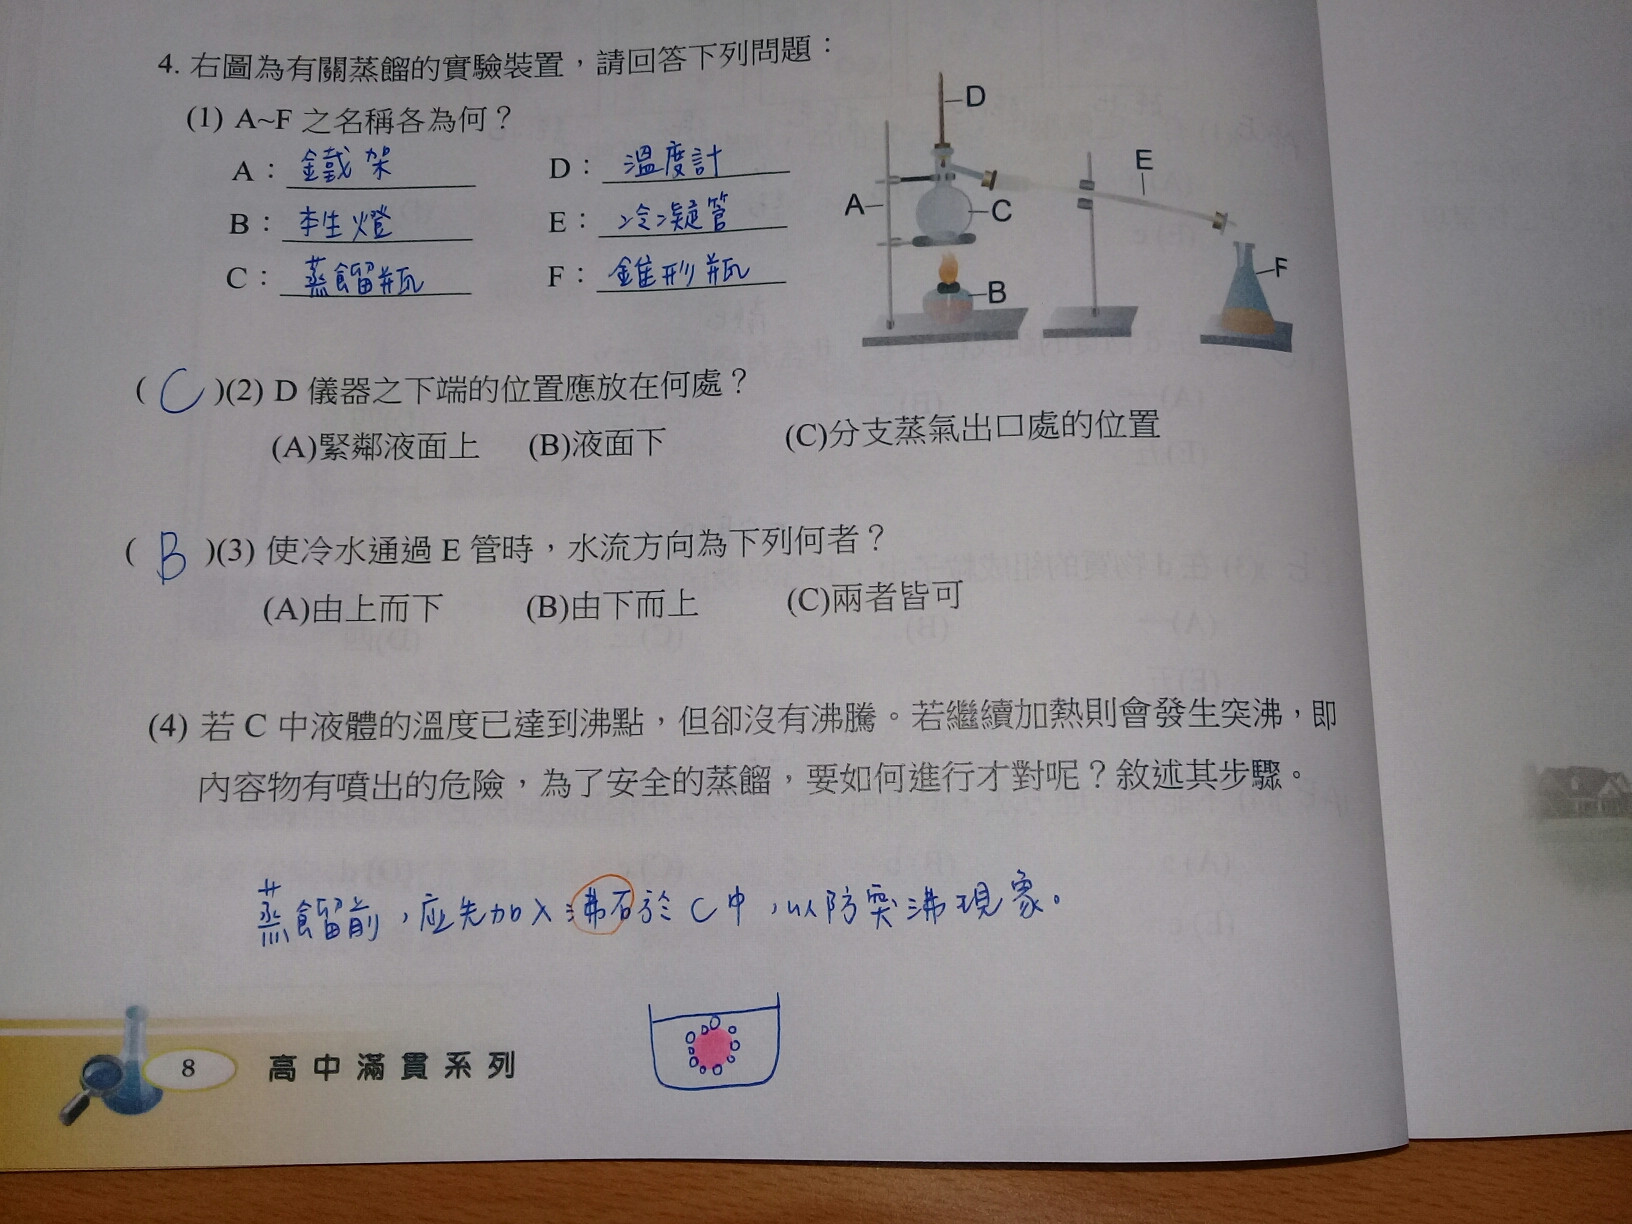 4. 右圖為有關蒸餾的實驗裝置，請回答下列問題：
(1) A~F 之名稱各為何？
A：鐵架 D：溫度計
B：本生燈 E：冷凝管
C：蒸餾瓶 F：錐形瓶
D
E
A
C
F
B
( C )(2) D 儀器之下端的位置應放在何處？
(A)緊鄰液面上 (B)液面下 (C)分支蒸氣出口處的位置
( B )(3) 使冷水通過 E 管時，水流方向為下列何者？
(A)由上而下 (B)由下而上 (C)兩者皆可
(4) 若 C 中液體的溫度已達到沸點，但卻沒有沸騰。若繼續加熱則會發生突沸，即
內容物有噴出的危險，為了安全的蒸餾，要如何進行才對呢？敘述其步驟。
蒸餾前，應先加入沸石於 C 中，以防突沸現象。
8 高中滿貫系列